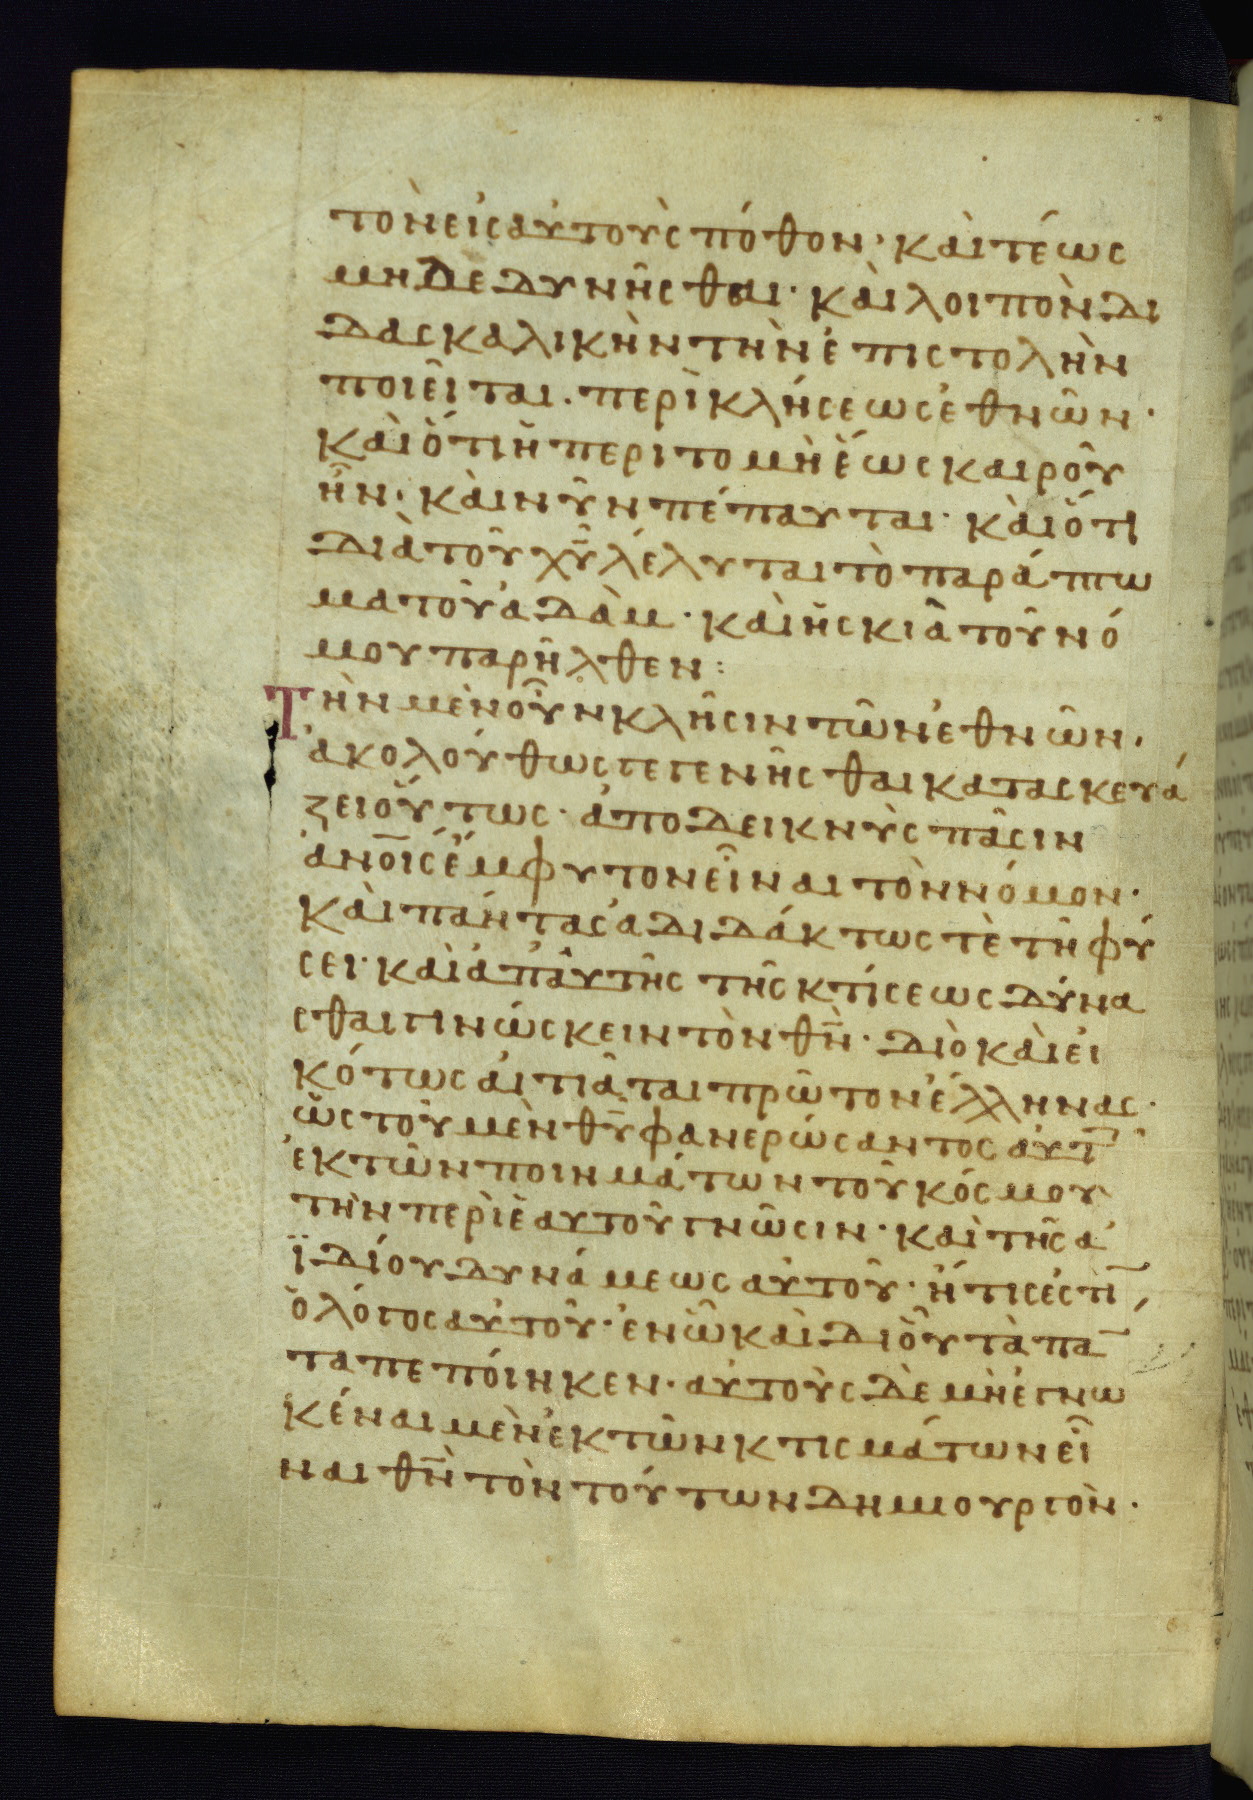 τὸν εἰς αὐτοὺς πόθον· καὶ τέως
μηδεδυνῆσθαι· καὶ λοιπὸν δι
δασκαλικὴν τὴν ἐπιστολὴν
ποιεῖται. περὶ κλήσεως ἐθνῶν·
καὶ ὅτι ἡ περιτομὴ ἕως καιροῦ
ἦν· καὶ νῦν πέπαυται· καὶ ὅτι
διὰ τοῦ χ̅υ̅ λέλυται τὸ παράπτω
μα τοῦ ἀδάμ· καὶ ἡ σκιὰ τοῦ νό
μου παρῆλθεν:
Τὴν μὲν οὖν κλῆσιν τῶν ἐθνῶν·
ἀκολούθως γεγενῆσθαι κατασκευά
ζει οὕτως· ἀποδεικνὺς πᾶσιν
ἀν̅ο̅ι̅ς ἔμφυτον εἶναι τὸν νόμον·
καὶ πάντας ἀδιδάκτως τὲ τῆ φύ
σει· καὶ ἀπ' αὐτῆς τῆς κτίσεως δύνα
σθαι γινώσκειν τὸν θ̅ν̅· διὸ καὶ εἰ
κότως αἰτιᾶται πρῶτον ἕλληνας·
ὡς τοῦ μὲν θ̅υ̅ φανερώσαντος αὐτ̅
ἐκ τῶν ποιημάτων τοῦ κόσμου
τὴν περὶ ἑαυτοῦ γνῶσιν· καὶ τῆς ἀ
ϊδίου δυνάμεως αὐτοῦ· ἥτις ἐστὶ̅,
ὁ λόγος αὐτοῦ· ἐν ᾧ καὶ δι' οὗ τὰ πα̅
τα πεπόιηκεν· αὐτοὺς δὲ μὴ ἐγνω
κέναι μὲν ἐκ τῶν κτισμάτων εἶ
ναι θ̅ν̅ τὸν τούτων δημουργὸν·